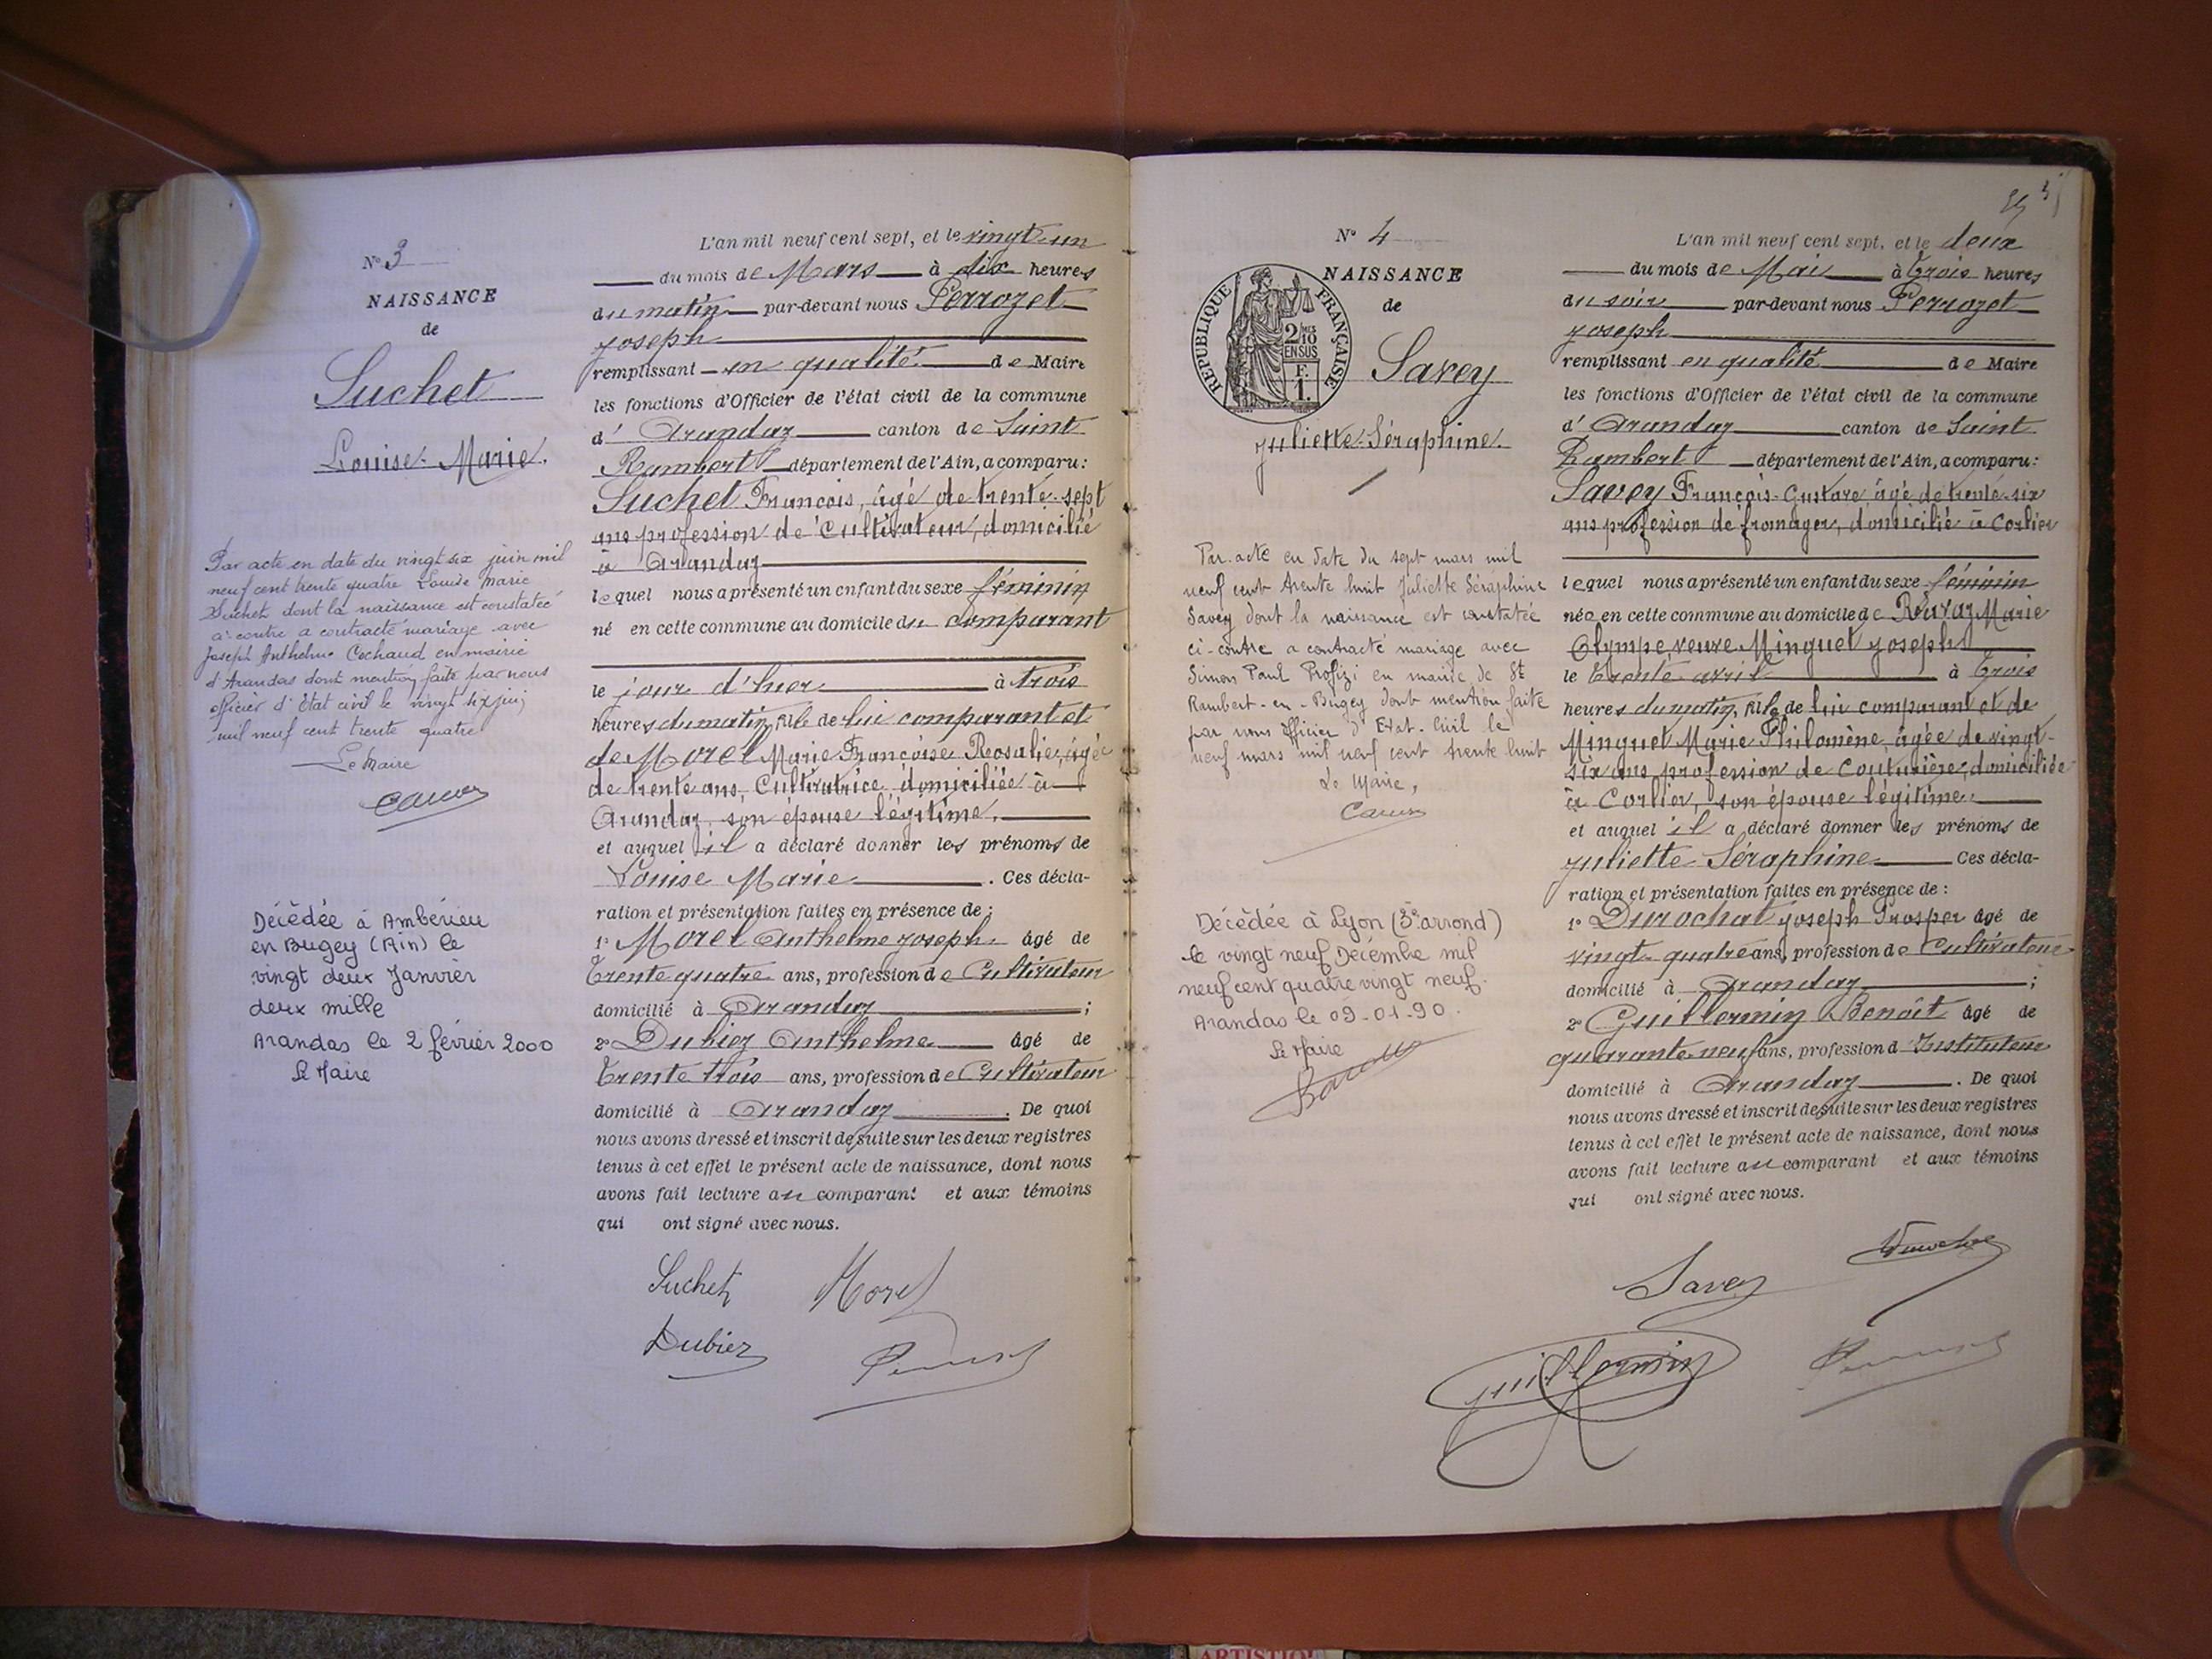 N° 3
NAISSANCE
de
Suchet
Louise Marie.
Par acte en date du vingt six juin mil
neuf cent trente quatre Louise Marie
Suchet dont la naissance est constatée
ci-contre a contracté mariage avec
Joseph Anthelme Cochaud en mairie
d'Arandas dont mention faite par nous
officier d'Etat civil le vingt six juin
mil neuf cent trente quatre
Le Maire
Décédée à Ambérieu
en Bugey (Ain) le
vingt deux Janvier
deux mille
Arandas le 2 février 2000
Le Maire
L'an mil neuf cent sept, et le vingt-un
du mois de Mars à dix heures
du matin par-devant nous Perrozet
Joseph
remplissant en qualité de Maire
les fonctions d'Officier de l'état civil de la commune
d' Arandaz canton de Saint
Rambert département de l'Ain, a comparu:
Suchet François, âgé de trente-sept
ans profession de Cultivateur, domicilié
à Arandaz
lequel nous a présenté un enfant du sexe féminin
né en cette commune au domicile du comparant
le jour d'hier à trois
heures du matin, fille de lui comparant et
de Morel Marie Françoise Rosalie, âgée
de trente ans, Cultivatrice, domiciliée à
Arandaz, son épouse légitime.
et auquel il a déclaré donner les prénoms de
Louise Marie . Ces décla-
ration et présentation faites en présence de :
1° Morel Anthelme Joseph âgé de
trente quatre ans, profession de Cultivateur
domicilié à Arandaz ;
2° Dubiez Anthelme âgé de
trente trois ans, profession de Cultivateur
domicilié à Arandaz . De quoi
nous avons dressé et inscrit de suite sur les deux registres
tenus à cet effet le présent acte de naissance, dont nous
avons fait lecture au comparant et aux témoins
qui ont signé avec nous.
Suchet Morel
Dubiez
N° 4
NAISSANCE
de
REPUBLIQUE FRANÇAISE
2/10
EN SUS
F.
1.
Savey
Juliette Séraphine
Par acte en date du sept mars mil
neuf cent trente huit Juliette Séraphine
Savey dont la naissance est constatée
ci-contre a contracté mariage avec
Simon Paul Profizi en mairie de St
Rambert-en-Bugey dont mention faite
par nous Officier d'Etat-Civil le
neuf mars mil neuf cent trente huit
Le Maire,
Décédée à Lyon (3e arrond)
le vingt neuf Décembre mil
neuf cent quatre vingt neuf.
Arandas le 09-01-90.
Le Maire
L'an mil neuf cent sept, et le deux
du mois de Mai à trois heures
du soir par-devant nous Perrozet
Joseph
remplissant en qualité de Maire
les fonctions d'Officier de l'état civil de la commune
d' Arandaz canton de Saint
Rambert département de l'Ain, a comparu:
Savey François-Gustave âgé de trente-six
ans profession de fromager, domicilié à Corlier
lequel nous a présenté un enfant du sexe féminin
née en cette commune au domicile de Marie
Olympe, veuve Minguet Joseph
le trente avril à trois
heures du matin, fille de lui comparant et de
Minguet Marie Philomène, âgée de vingt-
six ans, profession de Couturière, domiciliée
à Corlier, son épouse légitime.
et auquel il a déclaré donner les prénoms de
Juliette Séraphine Ces décla-
ration et présentation faites en présence de :
1° Durochat Joseph Prosper âgé de
vingt-quatre ans, profession de Cultivateur
domicilié à Arandaz ;
2° Guillermin Benoît âgé de
quarante-neuf ans, profession d'Instituteur
domicilié à Arandaz . De quoi
nous avons dressé et inscrit de suite sur les deux registres
tenus à cet effet le présent acte de naissance, dont nous
avons fait lecture au comparant et aux témoins
qui ont signé avec nous.
Savey
Guillermin